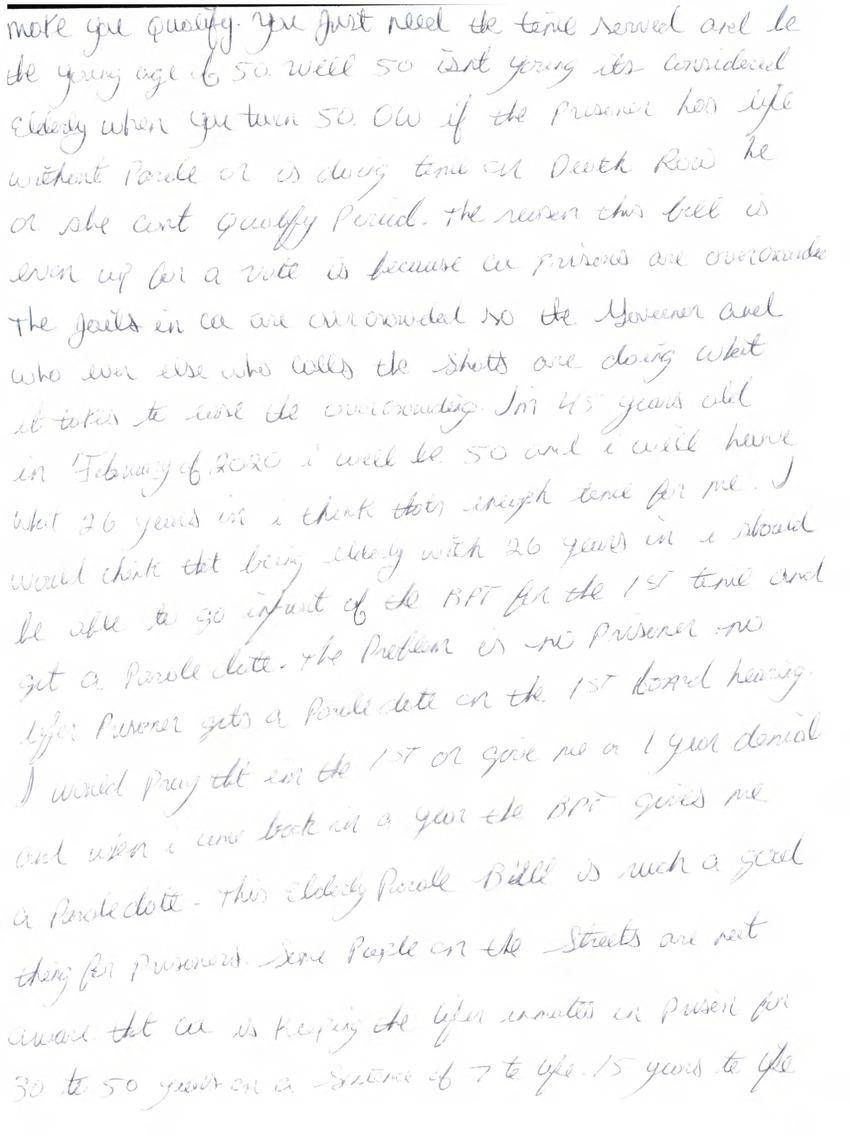 make you qualify. You Just need the time served and be
the young age of 50. well 50 isnt young its considered
Elderly when you turn 50. OW if the Prisoner has life
without Parole or is doing time on Death Row he
or she cant qualify Period. The reason this bill is
even up for a vote is because ca prisons are overcrowded
The Jails in ca are overcrowded so the Governer and
who ever else who calls the shots are doing what
it takes to ease the overcrowding. Im 45 years old
in February of 2020 i will be 50 and i will have
what 26 years in i think thats enough time for me. I
would think tht being elderly with 26 years in i should
be able to go infront of the BPT for the 1ST time and
get a Parole date. The Problem is no Prisoner no
lifer Prisoner gets a Parole date on the 1ST board hearing.
I would Pray tht im the 1ST or give me a 1 year denial
and when i come back in a year the BPT gives me
a Parole date. This Elderly Parole Bill is such a good
thing for Prisoners. Some People on the Streets are not
aware tht ca is Keeping the lifer inmates in Prison for
30 to 50 years on a Sentence of 7 to life. 15 years to life